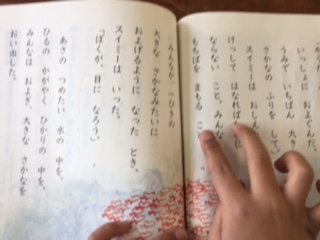 いっしょに およぐんだ。
うみで いちばん 大き
さかなの ふりを して。」
スイミーは おしえ
けっして はなればな に
ならない こと。みんな
もちばを まもる こ
みんなが、一ぴきの
大きな さかなみたいに
およげるように なった とき、
スイミーは いった。
「ぼくが、目に なろう。」
あさの つめたい 水の 中を、
ひるの かがやく ひかりの 中を、
みんなは およぎ、大きな さかなを
おい出した。